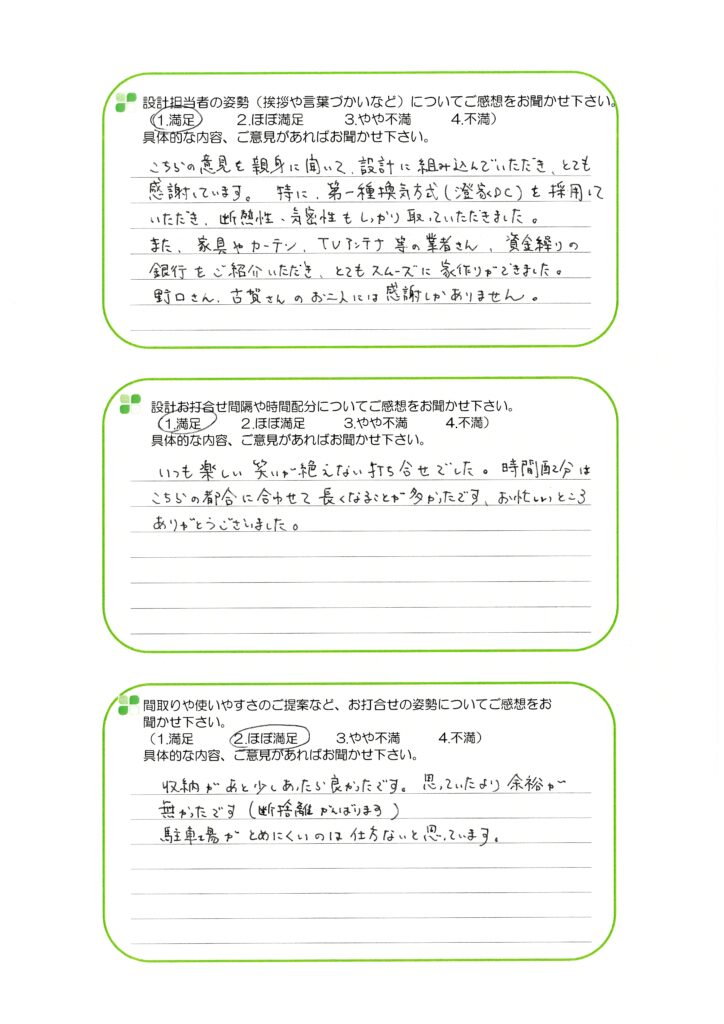 設計担当者の姿勢（挨拶や言葉づかいなど）についてご感想をお聞かせ下さい。
（1.満足　2.ほぼ満足　3.やや不満　4.不満）
具体的な内容、ご意見があればお聞かせ下さい。
こちらの意見を親身に聞いて、設計に組み込んでいただき、とても
感謝しています。 特に、第一種換気方式（澄家DC）を採用して
いただき、断熱性・気密性もしっかり取っていただきました。
また、家具やカーテン、TVアンテナ等の業者さん、資金繰りの
銀行をご紹介いただき、とてもスムーズに家作りができました。
野口さん、古賀さんのお二人には感謝しかありません。
設計お打合せ間隔や時間配分についてご感想をお聞かせ下さい。
（1.満足　2.ほぼ満足　3.やや不満　4.不満）
具体的な内容、ご意見があればお聞かせ下さい。
いつも楽しい笑いが絶えない打ち合せでした。時間配分は
こちらの都合に合わせて長くなることが多かったです、お忙しいところ
ありがとうございました。
間取りや使いやすさのご提案など、お打合せの姿勢についてご感想をお
聞かせ下さい。
（1.満足　2.ほぼ満足　3.やや不満　4.不満）
具体的な内容、ご意見があればお聞かせ下さい。
収納があと少しあったら良かったです。思っていたより余裕が
無かったです（断捨離がんばります）
駐車場がとめにくいのは仕方ないと思っています。